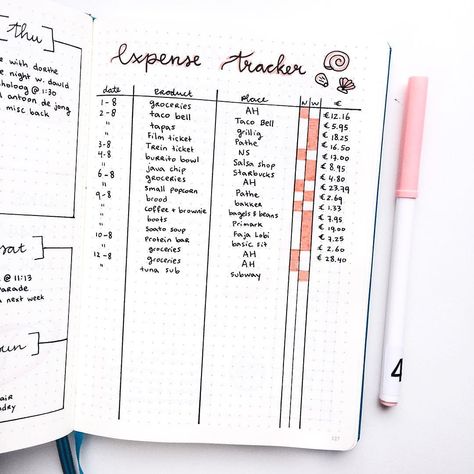 thu
e with dorthe
e night w. david
choloog @ 1:30
d antoon de jong
misc back
sat
@ 11:13
arade
n next week
un
air
ndry
Expense tracker
date product place N W €
1-8 groceries AH € 12.16
2-8 taco bell Taco Bell € 5.95
" tapas grillig € 18.25
" Film ticket Pathe € 16.50
3-8 Trein ticket NS € 17.00
4-8 burrito bowl Salsa shop € 8.95
" java chip Starbucks € 4.80
6-8 groceries AH € 23.79
" small popcorn Pathe € 2.69
9-8 brood bakker € 1.33
" coffee + brownie bagels & beans € 7.95
" boots Primark € 19.00
" Soato soup Faja Lobi € 7.25
10-8 Protein bar basic fit € 2.60
" groceries AH € 28.40
12-8 groceries AH
" tuna sub subway
127
4